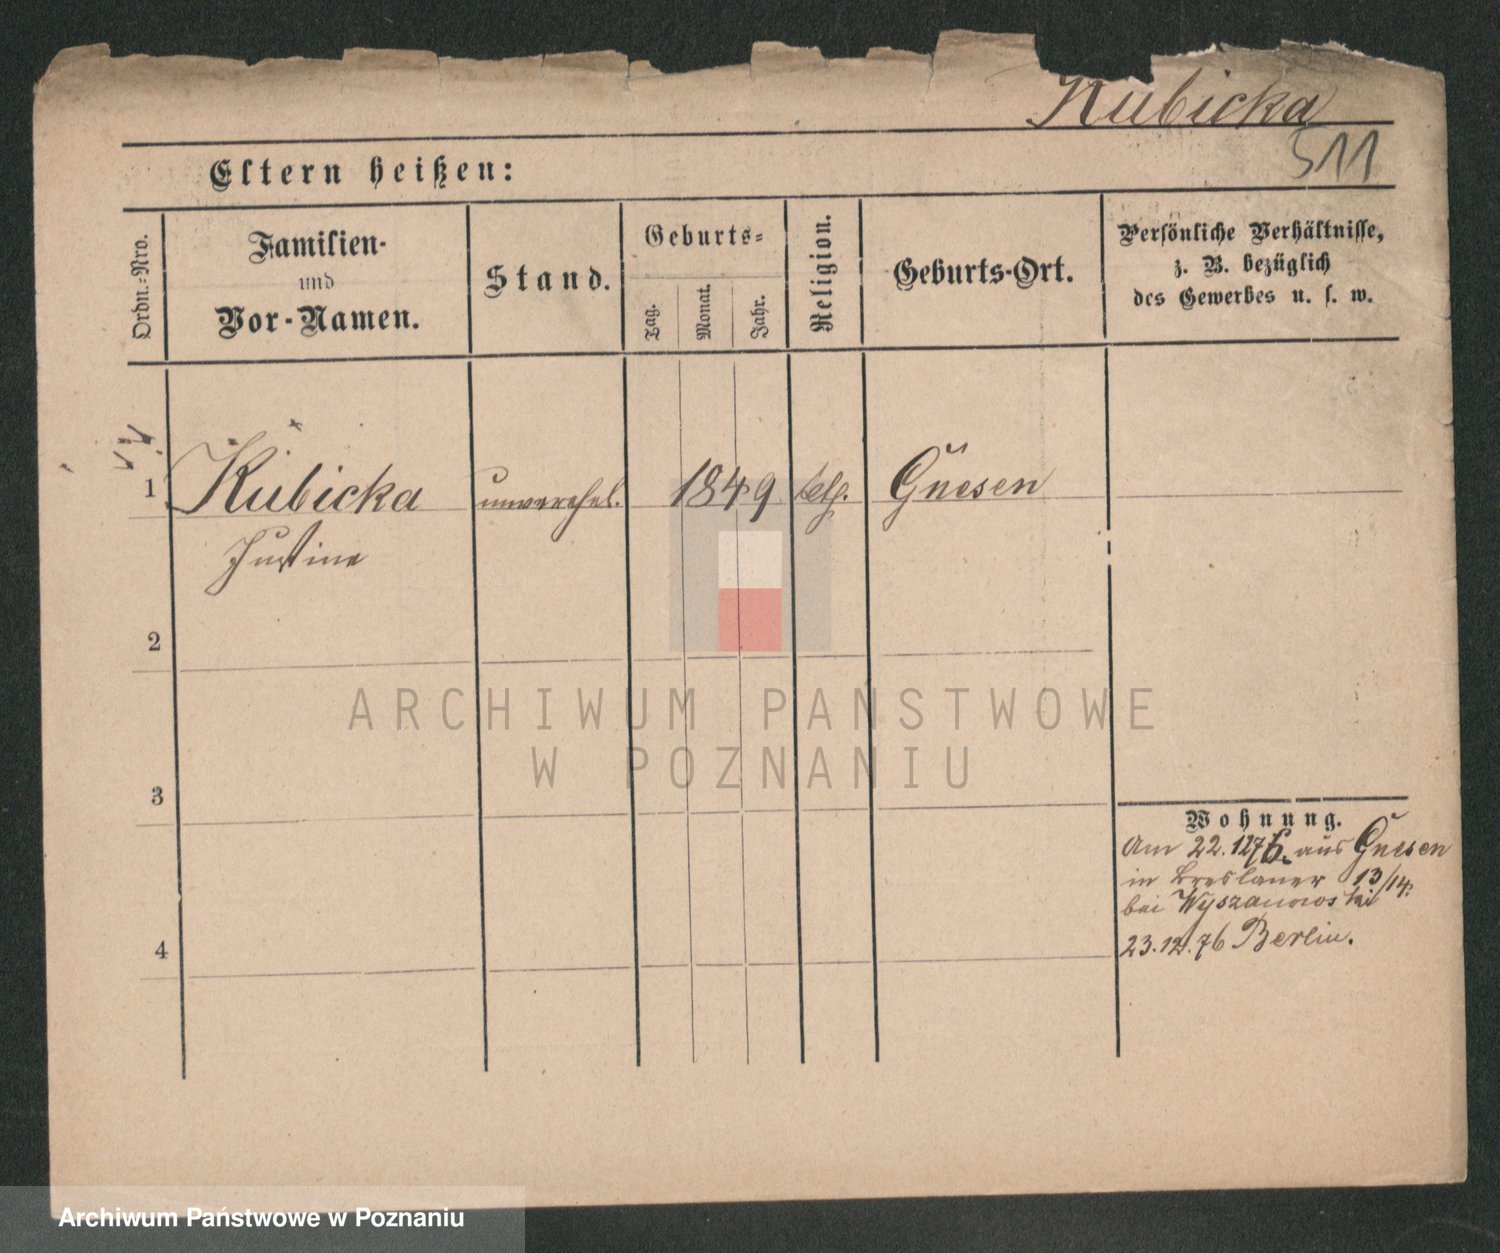 Kubicka
511
Eltern heißen:
Ordn.-Nro.
Familien-
und
Vor-Namen.
Stand.
Geburts-
Tag.
Monat.
Jahr.
Religion.
Geburts-Ort.
Persönliche Verhältnisse,
z. B. bezüglich
des Gewerbes u. s. w.
1 Kubicka unverehel. 1849 kath. Gnesen
Justine
2
ARCHIWUM PAŃSTWOWE
W POZNANIU
3
Wohnung.
Am 22.1276. aus Gnesen
in Breslauer 13/14.
bei
4
23.12.76 Berlin.
Archiwum Państwowe w Poznaniu